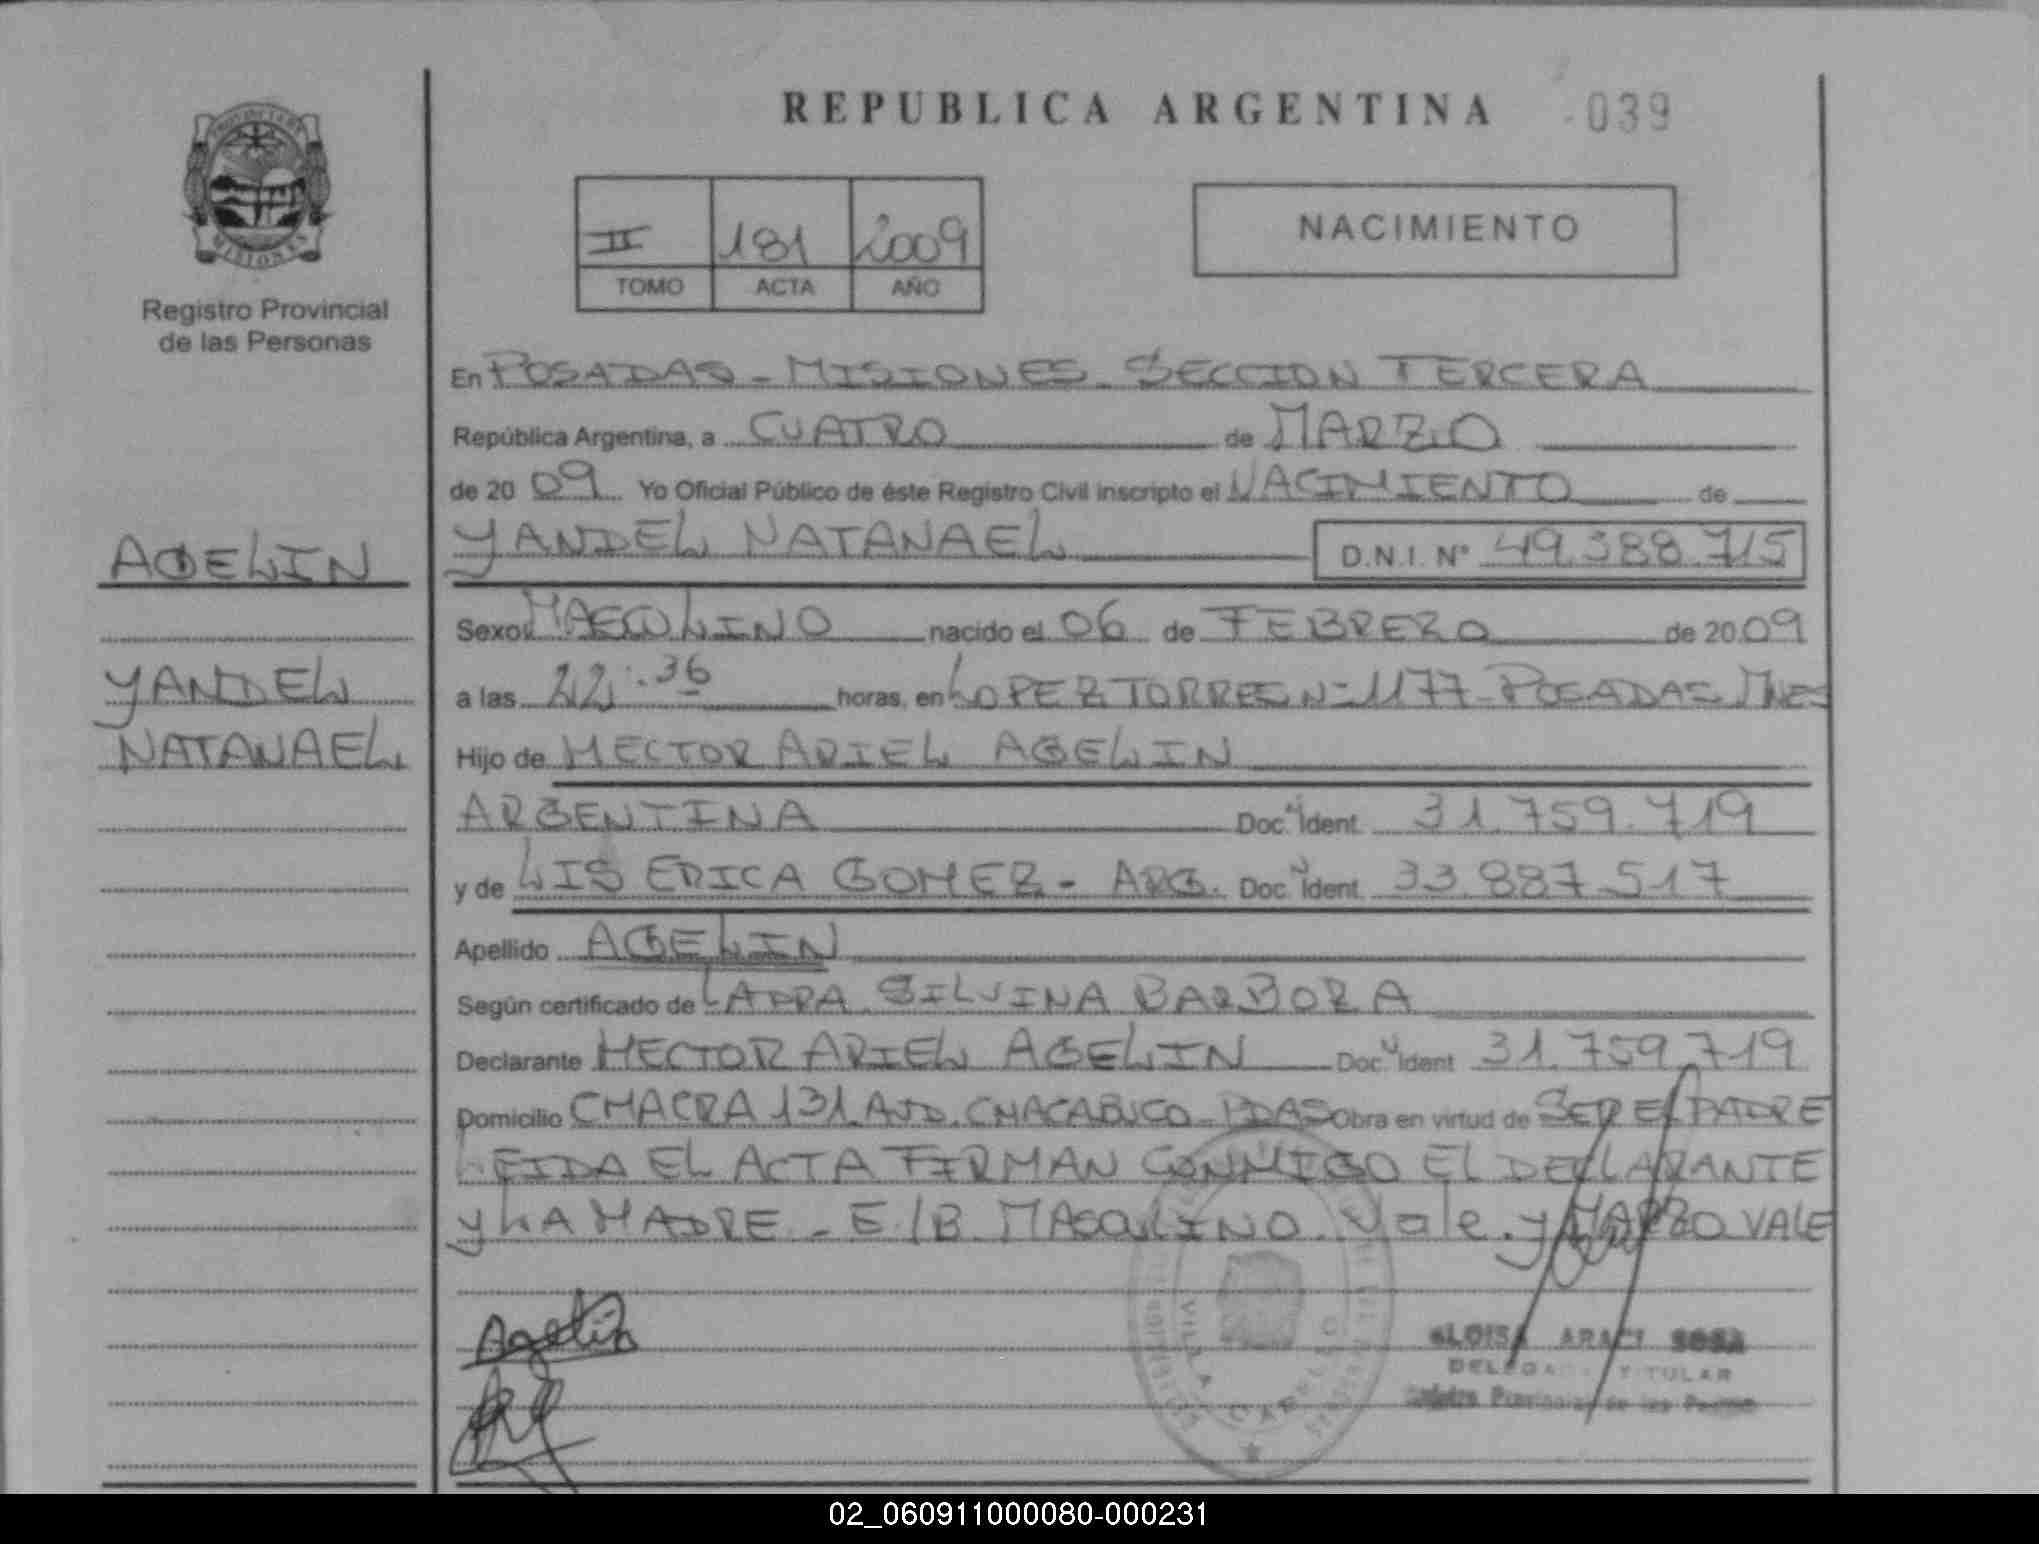 REPUBLICA ARGENTINA 039
II 181 2009
TOMO ACTA AÑO
NACIMIENTO
MISIONES
Registro Provincial
de las Personas
AGELIN
YANDEL
NATANAEL
En POSADAS - MISIONES - SECCION TERCERA
República Argentina, a CUATRO de MARZO
de 20 09 Yo Oficial Público de éste Registro Civil inscripto el NACIMIENTO de
YANDEL NATANAEL D.N.I. Nº 49.388.715
Sexo MASCULINO nacido el 06 de FEBRERO de 20 09
a las 22:36 horas, en LOPEZ TORRES Nº 1177 - POSADAS MNES
Hijo de HECTOR ARIEL AGELIN
ARGENTINA Doc. Ident. 31.759.719
y de LIS ERICA GOMEZ - ARG. Doc. Ident. 33.887.517
Apellido AGELIN
Según certificado de SILVINA BARBORA
Declarante HECTOR ARIEL AGELIN Doc. Ident. 31.759.719
Domicilio CHACRA 131 AVD. CHACABUCO - PDAS Obra en virtud de SER EL PADRE
LEIDA EL ACTA FIRMAN CONMIGO EL DECLARANTE
Y LA MADRE - E/B MASCULINO. Vale. y MARZO VALE
Agelin
ARACI SOSA
TITULAR
VILLA CABELLO
02_060911000080-000231